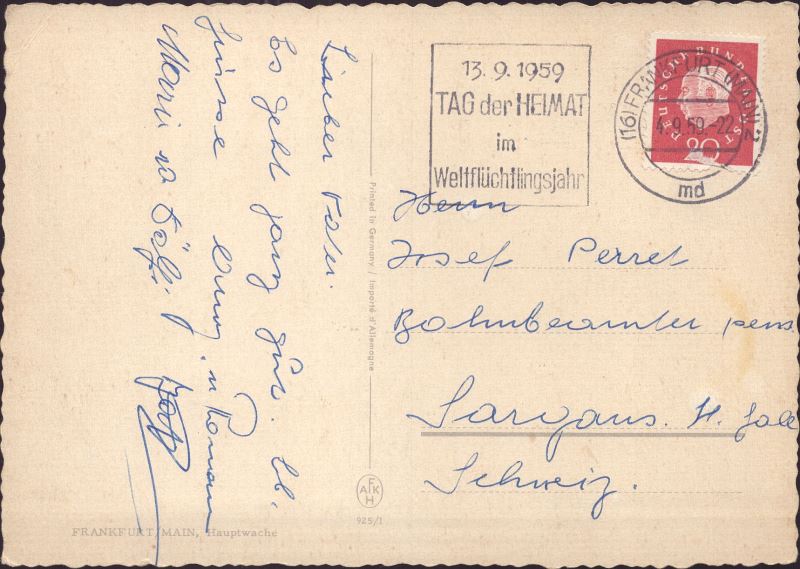 Lieber Vater.
Es geht ganz gut. Lb.
Grüsse Anny, u Roman
13.9.1959
TAG der HEIMAT
im
Weltflüchtlingsjahr
(16) FRANKFURT (MAIN) 2
4.9.59.-22
md
DEUTSCHE BUNDESPOST
20
Herrn
Josef Perret
Bahnbeamter pens
Sargans. St. Gall
Schweiz.
Printed in Germany / Importé d'Allemagne
AFKH
925/1
FRANKFURT/MAIN, Hauptwache